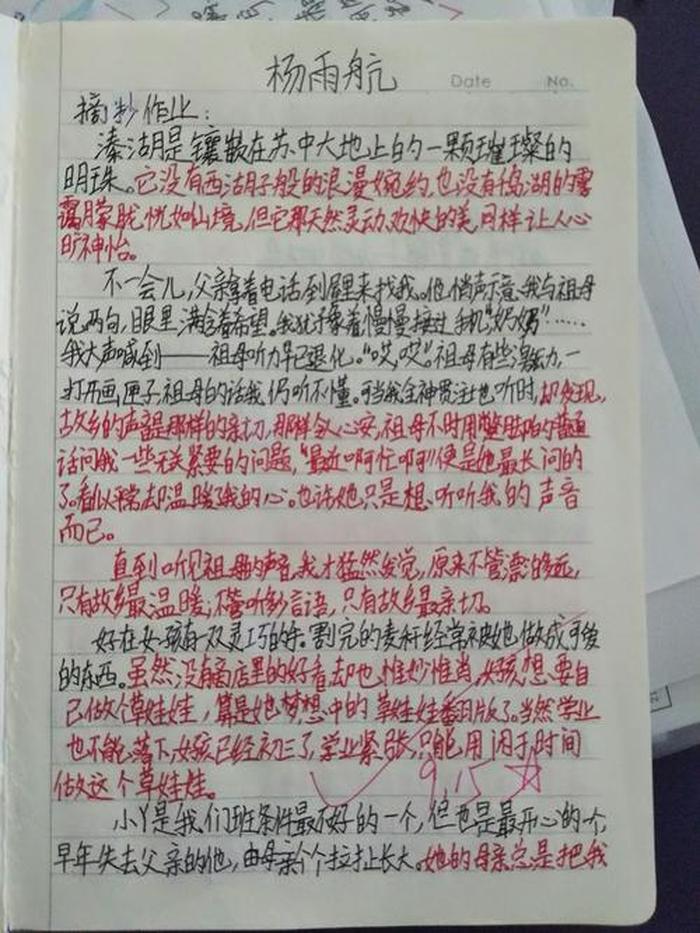 杨雨航
Date No.
摘抄作业:
溱湖是镶嵌在苏中大地上的一颗璀璨的
明珠。它没有西湖那般的浪漫婉约,也没有千岛湖的雾
霭朦胧恍如仙境,但它那天然灵动、欢快的美,同样让人心
旷神怡。
不一会儿,父亲拿着电话到屋里来找我。他悄声示意我与祖母
说两句,眼里满含着希望。我犹豫着慢慢接过手机"奶奶"……
我大声喊到——祖母听力早已退化。"哎,哎"。祖母有些激动,一
打开画匣子,祖母的话我仍听不懂。可当我全神贯注地听时,却发现,
故乡的声音是那样的亲切,那样令人心安,祖母不时用蹩脚的普通
话问我一些无关紧要的问题,"最近啊忙啊"便是她最长问的
了。看似平常却温暖了我的心。也许她只是想听听我的声音
而已。
直到听见祖母的声音,我才猛然发觉,原来不管漂的多远,
只有故乡最温暖,不管听多少言语,只有故乡最亲切。
好在女孩有一双灵巧的手。割完的麦秆经常被她做成手
的东西。虽然没有商店里的好看却也惟妙惟肖,女孩想要自
己做个草娃娃,算是她梦想中的草娃娃翻版了。当然学业
也不能落下,女孩已经初三了,学业紧张,只能用闲于时间
做这个草娃娃。
9.15
小丫是我们班条件最不好的一个,但也是最开心的个,
早年失去父亲的他,由母亲个个拉扯长大。她的母亲总是把我